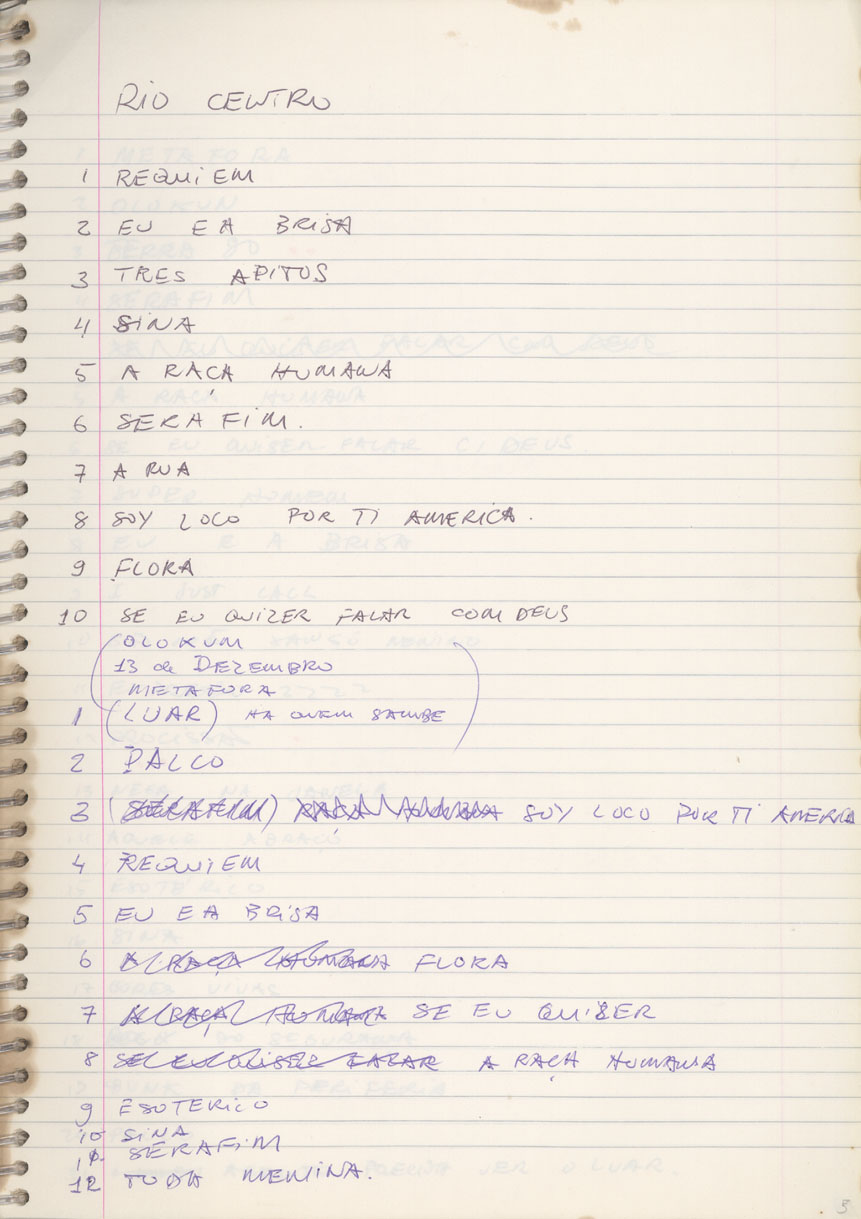 RIO CENTRO
1 REQUIEM
2 EU E A BRISA
3 TRES APITOS
4 SINA
5 A RAÇA HUMANA
6 SERAFIM.
7 A RUA
8 SOY LOCO POR TI AMERICA.
9 FLORA
10 SE EU QUIZER FALAR COM DEUS
(OLOKUM
13 de DEZEMBRO
METAFORA
1 (LUAR) HA QUEM SAMBE )
2 PALCO
3 (SERAFIM) RAÇA HUMANA SOY LOCO POR TI AMERICA
4 REQUIEM
5 EU E A BRISA
6 A RAÇA HUMANA FLORA
7 A RAÇA HUMANA SE EU QUISER
8 SE EU QUISER FALAR A RAÇA HUMANA
9 ESOTERICO
10 SINA
11 SERAFIM
12 TODA MENINA.
5